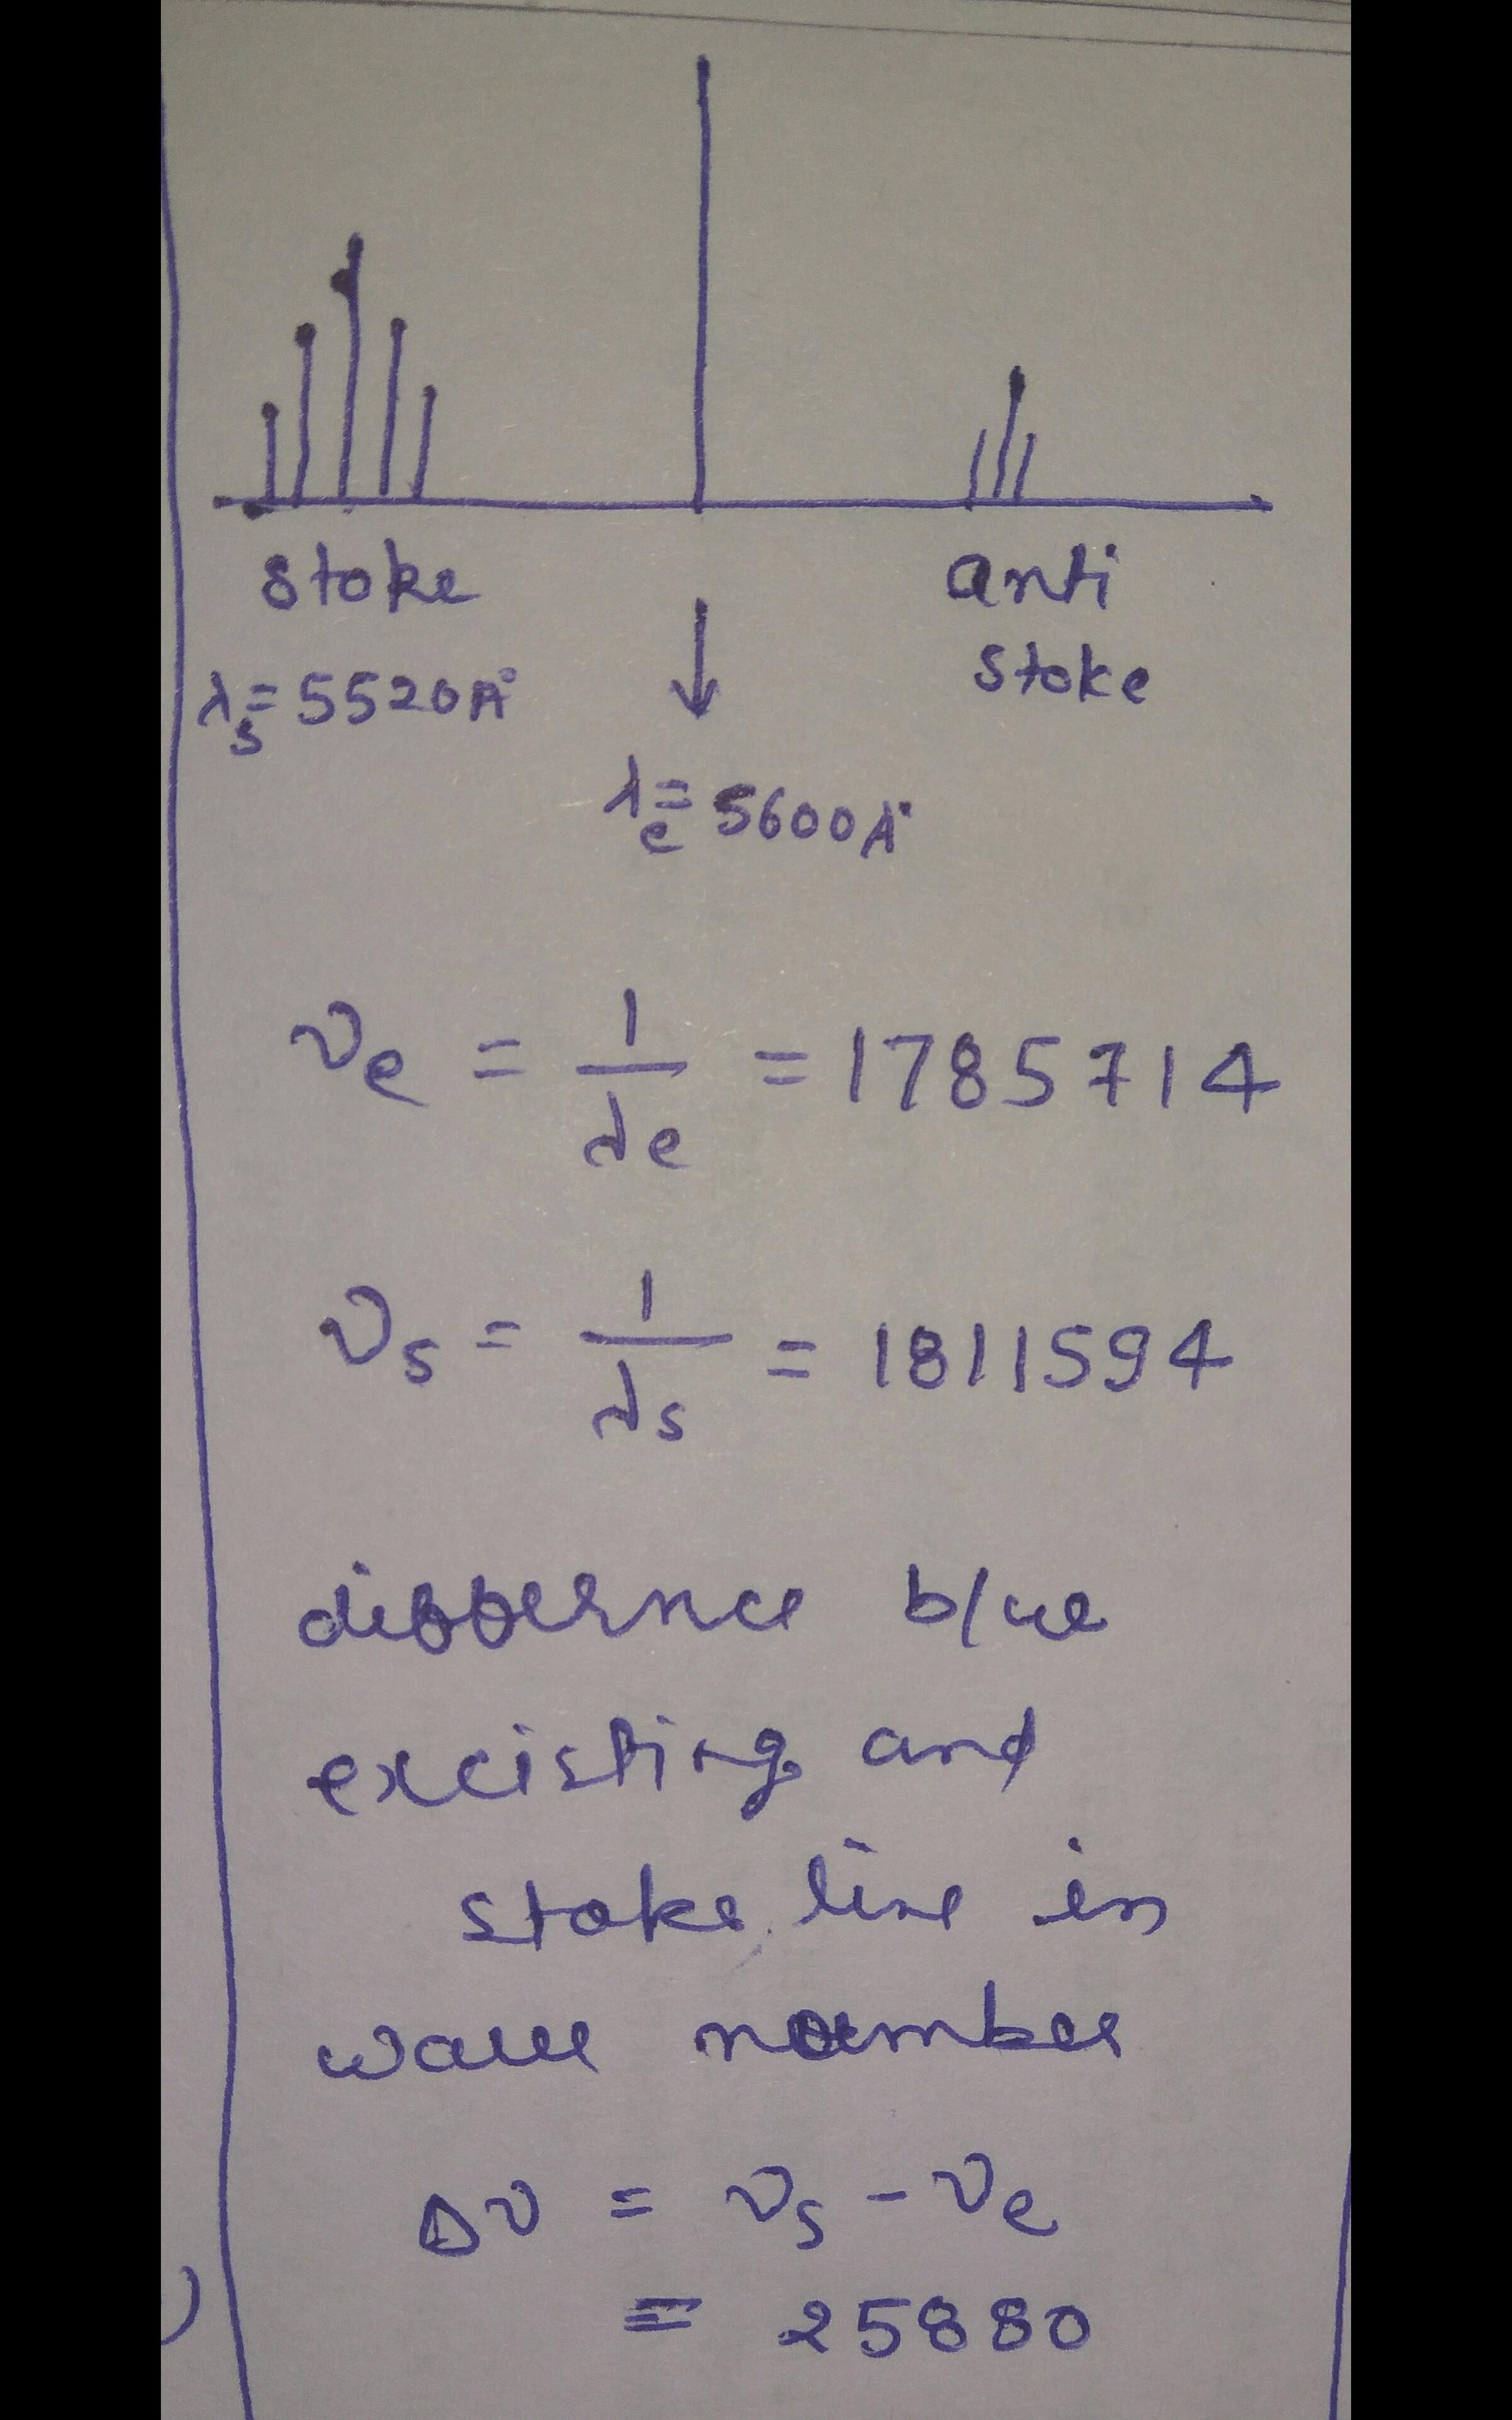 stoke
anti
stoke
λs = 5520A°
λe = 5600A°
νe = 1/λe = 1785714
νs = 1/λs = 1811594
differnce b/we
excisting and
stoke line in
wave number
Δν = νs - νe
= 25880
)